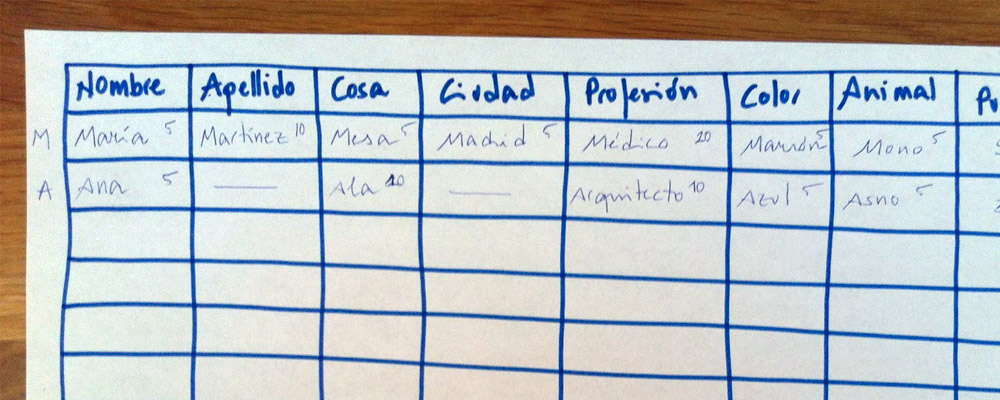 Nombre Apellido Cosa Ciudad Profesión Color Animal
M María 5 Martínez 10 Mesa 5 Madrid 5 Médico 20 Marrón 5 Mono 5
A Ana 5 — Ala 10 — Arquitecto 10 Azul 5 Asno 5